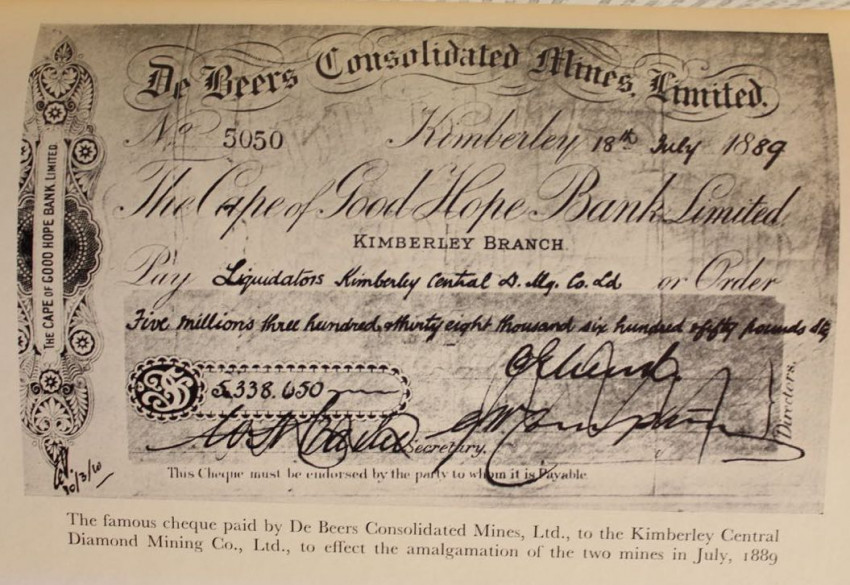 De Beers Consolidated Mines, Limited.
No 5050 Kimberley 18th July 1889
The Cape of Good Hope Bank Limited.
KIMBERLEY BRANCH.
Pay Liquidators Kimberley Central D. Mg. Co. Ld or Order
Five millions three hundred & thirty eight thousand six hundred & fifty pounds Stg
5,338.650
Directors.
Secretary.
This Cheque must be endorsed by the party to whom it is Payable.
THE CAPE OF GOOD HOPE BANK LIMITED.
The famous cheque paid by De Beers Consolidated Mines, Ltd., to the Kimberley Central
Diamond Mining Co., Ltd., to effect the amalgamation of the two mines in July, 1889